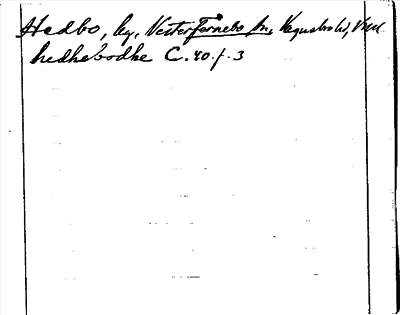 Hedbo, by, Västerfärnebo sn, Vagnsbro hd, Vml
hedhebodhe C. 40. f. 3